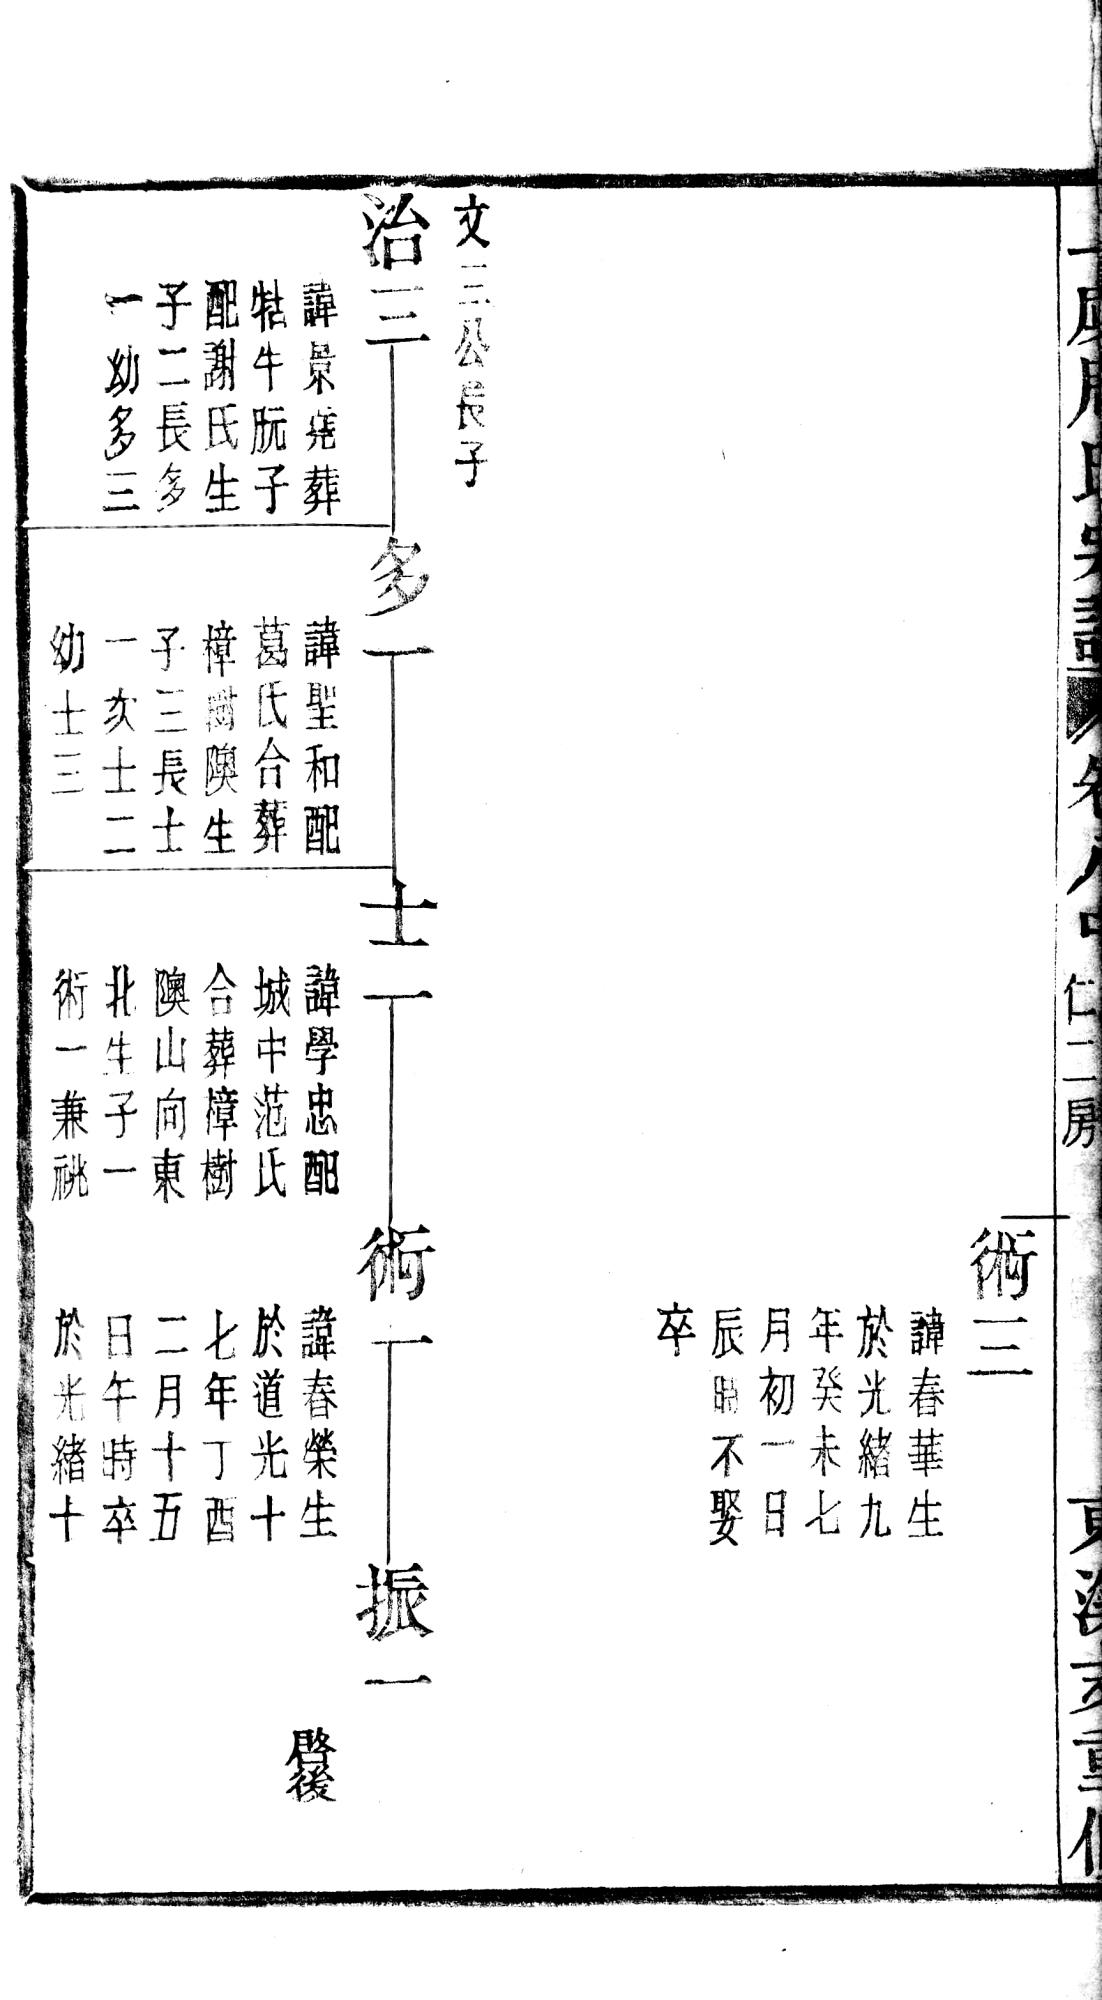 仁二房
術三
諱春華生
於光緒九
年癸未七
月初一日
辰時不娶
卒
文三公長子
治三
諱景堯葬
牯牛䏓子
配謝氏生
子二長多
一幼多三
多一
諱聖和配
葛氏合葬
樟樹隩生
子三長士
一次士二
幼士三
士一
諱學忠配
城中范氏
合葬樟樹
隩山向東
北生子一
術一兼祧
術一
諱春榮生
於道光十
七年丁酉
二月十五
日午時卒
於光緒十
振一
啓後